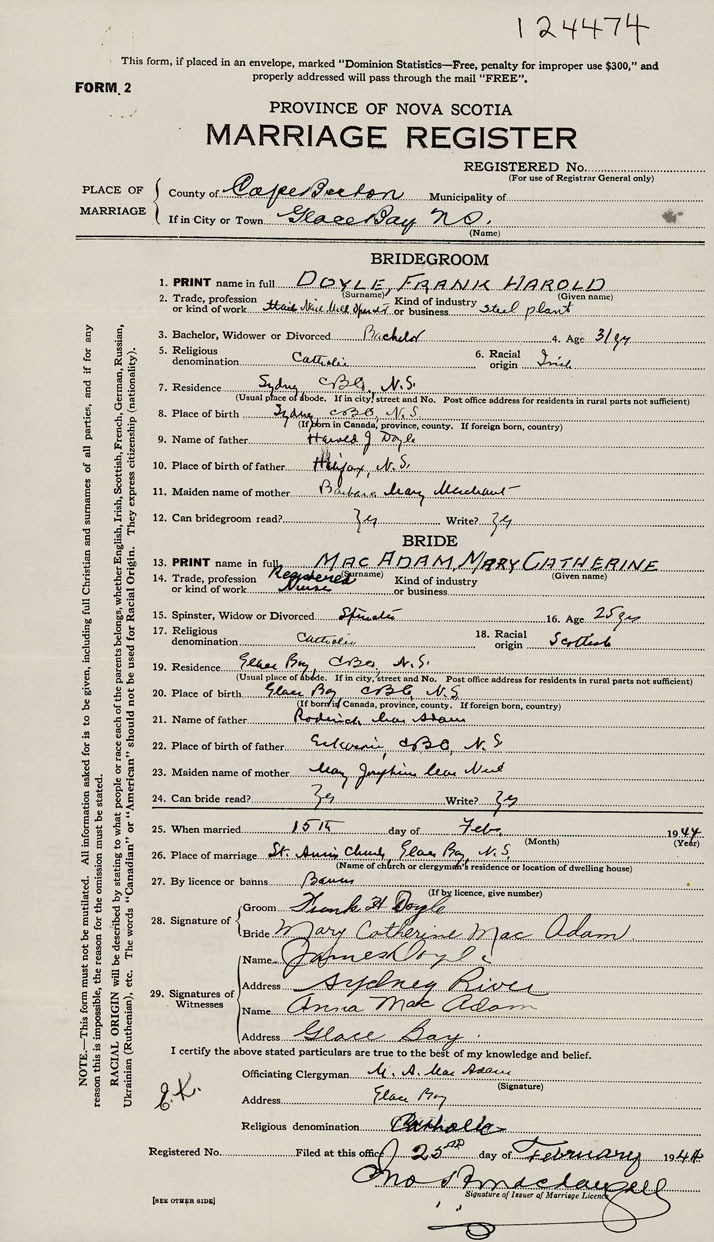 124474
This form, if placed in an envelope, marked "Dominion Statistics—Free, penalty for improper use $300," and
properly addressed will pass through the mail "FREE".
FORM 2
PROVINCE OF NOVA SCOTIA
MARRIAGE REGISTER
REGISTERED No.
(For use of Registrar General only)
PLACE OF MARRIAGE
County of Cape Breton Municipality of
If in City or Town Glace Bay N.S.
(Name)
BRIDEGROOM
1. PRINT name in full DOYLE, FRANK HAROLD
(Surname) (Given name)
2. Trade, profession or kind of work Kind of industry or business steel plant
3. Bachelor, Widower or Divorced Bachelor 4. Age 31 yr
5. Religious denomination Catholic 6. Racial origin Irish
7. Residence Sydney C.B.Co, N.S.
(Usual place of abode. If in city, street and No. Post office address for residents in rural parts not sufficient)
8. Place of birth Sydney C.B.Co, N.S.
(If born in Canada, province, county. If foreign born, country)
9. Name of father Harold J Doyle
10. Place of birth of father Halifax, N.S.
11. Maiden name of mother Barbara Mary Merchant
12. Can bridegroom read? Yes Write? Yes
BRIDE
13. PRINT name in full MAC ADAM, MARY CATHERINE
(Surname) (Given name)
14. Trade, profession or kind of work Registered Nurse Kind of industry or business
15. Spinster, Widow or Divorced Spinster 16. Age 25 yrs
17. Religious denomination Catholic 18. Racial origin Scottish
19. Residence Glace Bay, C.B.Co, N.S.
(Usual place of abode. If in city, street and No. Post office address for residents in rural parts not sufficient)
20. Place of birth Glace Bay, C.B.Co, N.S.
(If born in Canada, province, county. If foreign born, country)
21. Name of father Roderick Mac Adam
22. Place of birth of father C.B.Co, N.S.
23. Maiden name of mother Mary Josephine Mac Neil
24. Can bride read? Yes Write? Yes
25. When married 15th day of Feb. 1944
(Month) (Year)
26. Place of marriage St. Anns Church, Glace Bay, N.S.
(Name of church or clergyman's residence or location of dwelling house)
27. By licence or banns Banns
(If by licence, give number)
28. Signature of
Groom Frank H Doyle
Bride Mary Catherine Mac Adam
29. Signatures of Witnesses
Name James Doyle
Address Sydney River
Name Anna Mac Adam
Address Glace Bay.
I certify the above stated particulars are true to the best of my knowledge and belief.
Officiating Clergyman M. A. Mac Adam
(Signature)
Address Glace Bay
Religious denomination Catholic
Registered No. Filed at this office 25th day of February 1944
Signature of Issuer of Marriage Licence
[SEE OTHER SIDE]
NOTE.—This form must not be mutilated. All information asked for is to be given, including full Christian and surnames of all parties, and if for any
reason this is impossible, the reason for the omission must be stated.
RACIAL ORIGIN will be described by stating to what people or race each of the parents belongs, whether English, Irish, Scottish, French, German, Russian,
Ukrainian (Ruthenian), etc. The words "Canadian" or "American" should not be used for Racial Origin. They express citizenship (nationality).